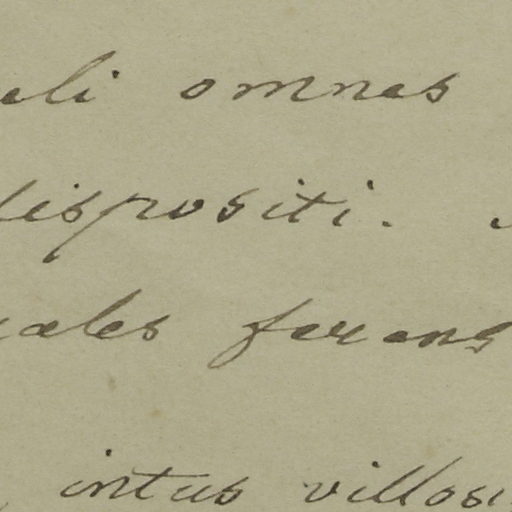 eli omnes
dispositi.
ales ferens
, intus villosi